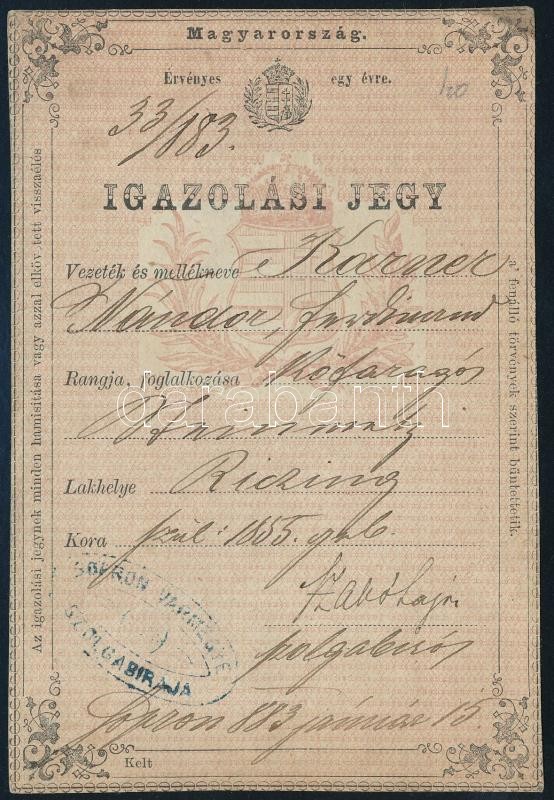 Magyarország.
Érvényes egy évre.
33/183.
IGAZOLÁSI JEGY
Vezeték és mellékneve Karner
Nándor, Ferdinand
Rangja, foglalkozása Kőfaragó
Steinmetz
Lakhelye Riczing
Kora szül: 1855
Szabó Lajos
szolgabíró
SOPRON VÁRMEGYE
SZOLGABIRAJA
Sopron 883 január 15.
Kelt
Az igazolási jegynek minden hamisítása vagy azzal elköv tett visszaélés
a' fonálló törvények szerint büntettetik.
darabanth